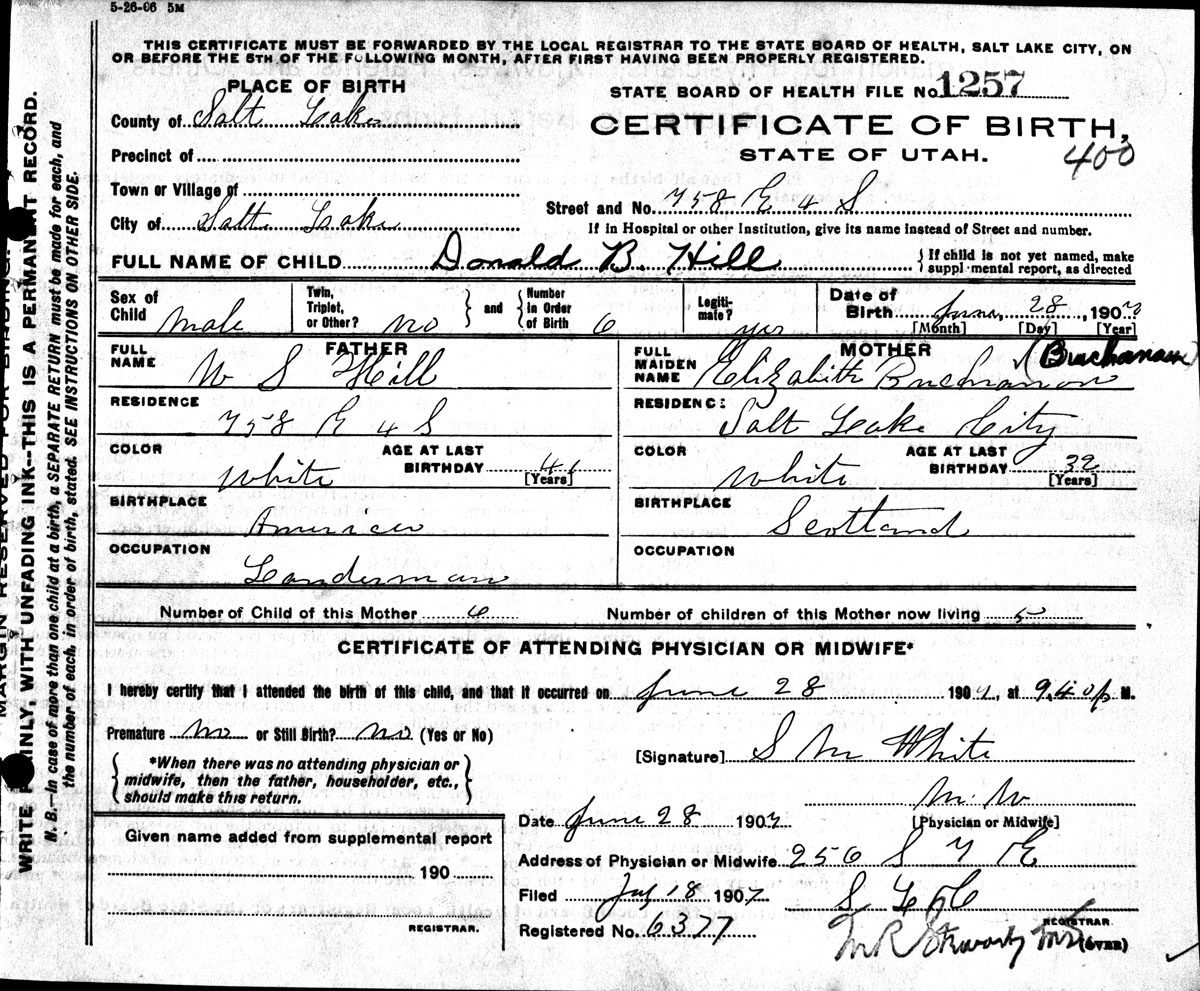 5-26-06 5M
THIS CERTIFICATE MUST BE FORWARDED BY THE LOCAL REGISTRAR TO THE STATE BOARD OF HEALTH, SALT LAKE CITY, ON
OR BEFORE THE 5TH OF THE FOLLOWING MONTH, AFTER FIRST HAVING BEEN PROPERLY REGISTERED.
PLACE OF BIRTH
STATE BOARD OF HEALTH FILE No. 1257
County of Salt Lake
CERTIFICATE OF BIRTH,
STATE OF UTAH. 400
Precinct of
Town or Village of
Street and No. 758 E 4 S
City of Salt Lake
If in Hospital or other Institution, give its name instead of Street and number.
FULL NAME OF CHILD Donald B. Hill
{ If child is not yet named, make
supplemental report, as directed
Sex of Child male
Twin, Triplet, or Other? no
and Number in Order of Birth 6
Legitimate? yes
Date of Birth June, 28, 1907
[Month] [Day] [Year]
FATHER
FULL NAME W S Hill
RESIDENCE 758 E 4 S
COLOR White
AGE AT LAST BIRTHDAY [Years]
BIRTHPLACE America
OCCUPATION
MOTHER
FULL MAIDEN NAME Elizabeth Buchanan (Buchanan)
RESIDENCE Salt Lake City
COLOR White
AGE AT LAST BIRTHDAY 32 [Years]
BIRTHPLACE Scotland
OCCUPATION
Number of Child of this Mother 6
Number of children of this Mother now living 5
CERTIFICATE OF ATTENDING PHYSICIAN OR MIDWIFE*
I hereby certify that I attended the birth of this child, and that it occurred on June 28 1907, at 9.40 p M.
Premature No or Still Birth? No (Yes or No)
[Signature] S M White
{ *When there was no attending physician or
midwife, then the father, householder, etc.,
should make this return. }
M. W
[Physician or Midwife]
Date June 28 1907
Given name added from supplemental report
190
REGISTRAR.
Address of Physician or Midwife 256 S 7 E
Filed July 18 1907
Registered No. 6377
REGISTRAR.
(OVER)
MARGIN RESERVED FOR BINDING.
WRITE PLAINLY, WITH UNFADING INK--THIS IS A PERMANENT RECORD.
N. B.—In case of more than one child at a birth, a SEPARATE RETURN must be made for each, and
the number of each, in order of birth, stated. SEE INSTRUCTIONS ON OTHER SIDE.